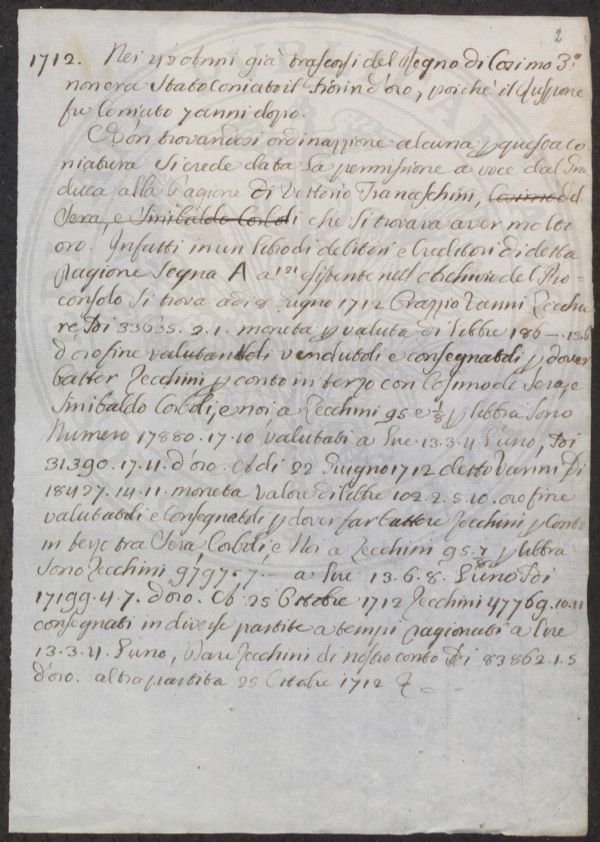 2
1712. Nei 42 anni già trascorsi del Regno di Cosimo 3.º
non era stato coniato il Fiorin d'oro, poiche il Ruspone
fu coniato 7 anni dopo.
E non trovandosi ordinazione alcuna p questa co-
niatura si crede data la permissione a voce dal Gra
duca alla Ragione di Vettorio Franceschini, Cosimo del
Sera, e Sinibaldo Corboli che si trovava aver molto
oro. Infatti in un Libro di debitori e Creditori di detta
Ragione Segna A a esistente nell'Archivio del Pro-
consolo si trova adi 8 Giugno 1712 Vanni Zecchie
re 33635. 2. 1. moneta p valuta di libbre 186 —.
d'oro fine vendutoli e consegnatoli p dover
batter Zecchini p conto in terzo con Cosimo del Sera, e
Sinibaldo Corboli, e noi a Zecchini 95 e 7/8 p libbra sono
Numero 17880. 17. 10, valutati a Lire 13. 3. 4. l'uno,
31390. 17. 11. d'oro. E di 22 Giugno 1712 detto Vanni
18427. 14. 11. moneta valore di libbre 102. 2. 5. 10. oro fine
valutatoli e Consegnatoli p dover far battere Zecchini p Conto
in terzo tra Sera, Corboli, e Noi a Zecchini 95. 7/8 p libbra
sono Zecchini 9797. 7. — a Lire 13. 6. 8. l'uno
17199. 4. 7. d'oro. E 25 Ottobre 1712 Zecchini 47769. 10. 11
consegnati in diverse partite a tempi ragionati a Lire
13. 3. 4. l'uno, Zecchini di nostro conto 83862. 1. 5
d'oro. altra partita 25 Ottobre 1712